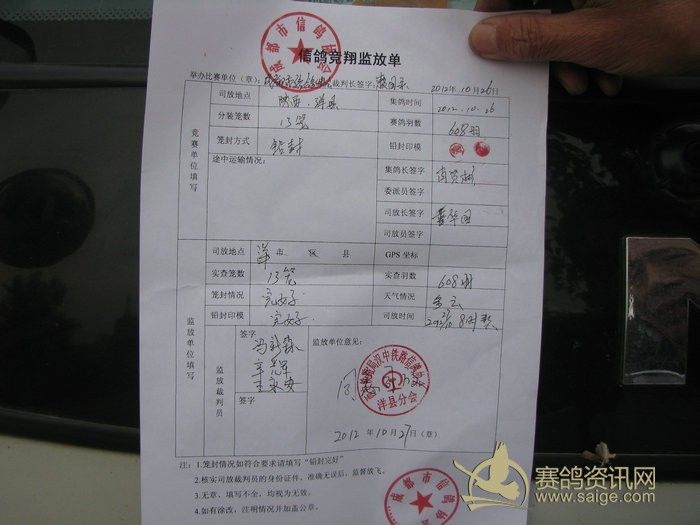 成都市信鸽协会
信鸽竞翔监放单
举办比赛单位（章）： 裁判长签字： 2012年10月26日
竞赛单位填写
司放地点 陕西.洋县 集鸽时间 2012.10.26
分装笼数 13笼 赛鸽羽数 608羽
笼封方式 铅封 铅封印模
途中运输情况： 集鸽长签字
委派员签字
司放长签字
司放员签字
监放单位填写
司放地点 洋 市 区 县 GPS坐标
实查笼数 13笼 实查羽数 608羽
笼封情况 完好 天气情况 多云
铅封印模 完好 司放时间
监放裁判员
签字
签字
监放单位意见：
洋县分会
2012年10月27日（章）
注：1.笼封情况如符合要求请填写“铅封完好”
2.核实司放裁判员的身份证件，准确无误后，监督放飞。
3.无章、填写不全，均视为无效。
4.如有涂改，注明情况并加盖公章。
成都市信鸽协
赛鸽资讯网
www.saige.com